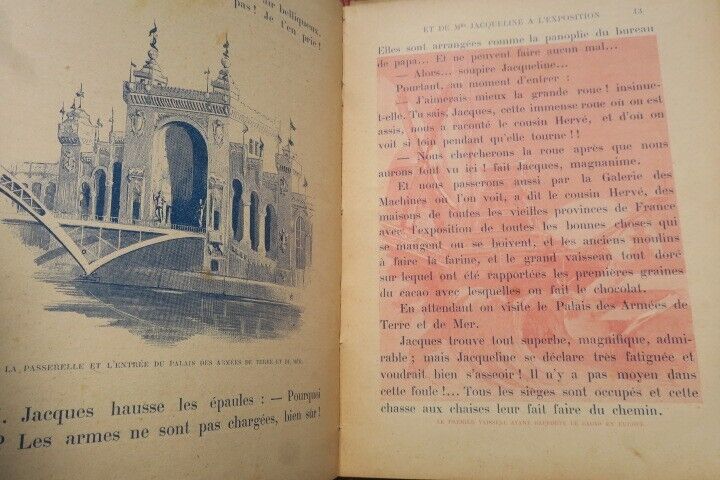 ur belliqueux.
pas ! Je t'en prie !
LA PASSERELLE ET L'ENTRÉE DU PALAIS DES ARMÉES DE TERRE ET DE MER.
. Jacques hausse les épaules : — Pourquoi
? Les armes ne sont pas chargées, bien sûr !
ET DE Mlle JACQUELINE A L'EXPOSITION 13
Elles sont arrangées comme la panoplie du bureau
de papa... Et ne peuvent faire aucun mal...
— Alors... soupire Jacqueline...
Pourtant, au moment d'entrer :
— J'aimerais mieux la grande roue ! insinue-
t-elle. Tu sais, Jacques, cette immense roue où on est
assis, nous a raconté le cousin Hervé, et d'où on
voit si loin pendant qu'elle tourne !!
— Nous chercherons la roue après que nous
aurons tout vu ici ! fait Jacques, magnanime.
Et nous passerons aussi par la Galerie des
Machines où l'on voit, a dit le cousin Hervé, des
maisons de toutes les vieilles provinces de France
avec l'exposition de toutes les bonnes choses qui
se mangent ou se boivent, et les anciens moulins
à faire la farine, et le grand vaisseau tout doré
sur lequel ont été rapportées les premières graines
du cacao avec lesquelles on fait le chocolat.
En attendant on visite le Palais des Armées de
Terre et de Mer.
Jacques trouve tout superbe, magnifique, admi-
rable ; mais Jacqueline se déclare très fatiguée et
voudrait bien s'asseoir ! Il n'y a pas moyen dans
cette foule !... Tous les sièges sont occupés et cette
chasse aux chaises leur fait faire du chemin.
LE PREMIER VAISSEAU AYANT RAPPORTÉ DU CACAO EN EUROPE.